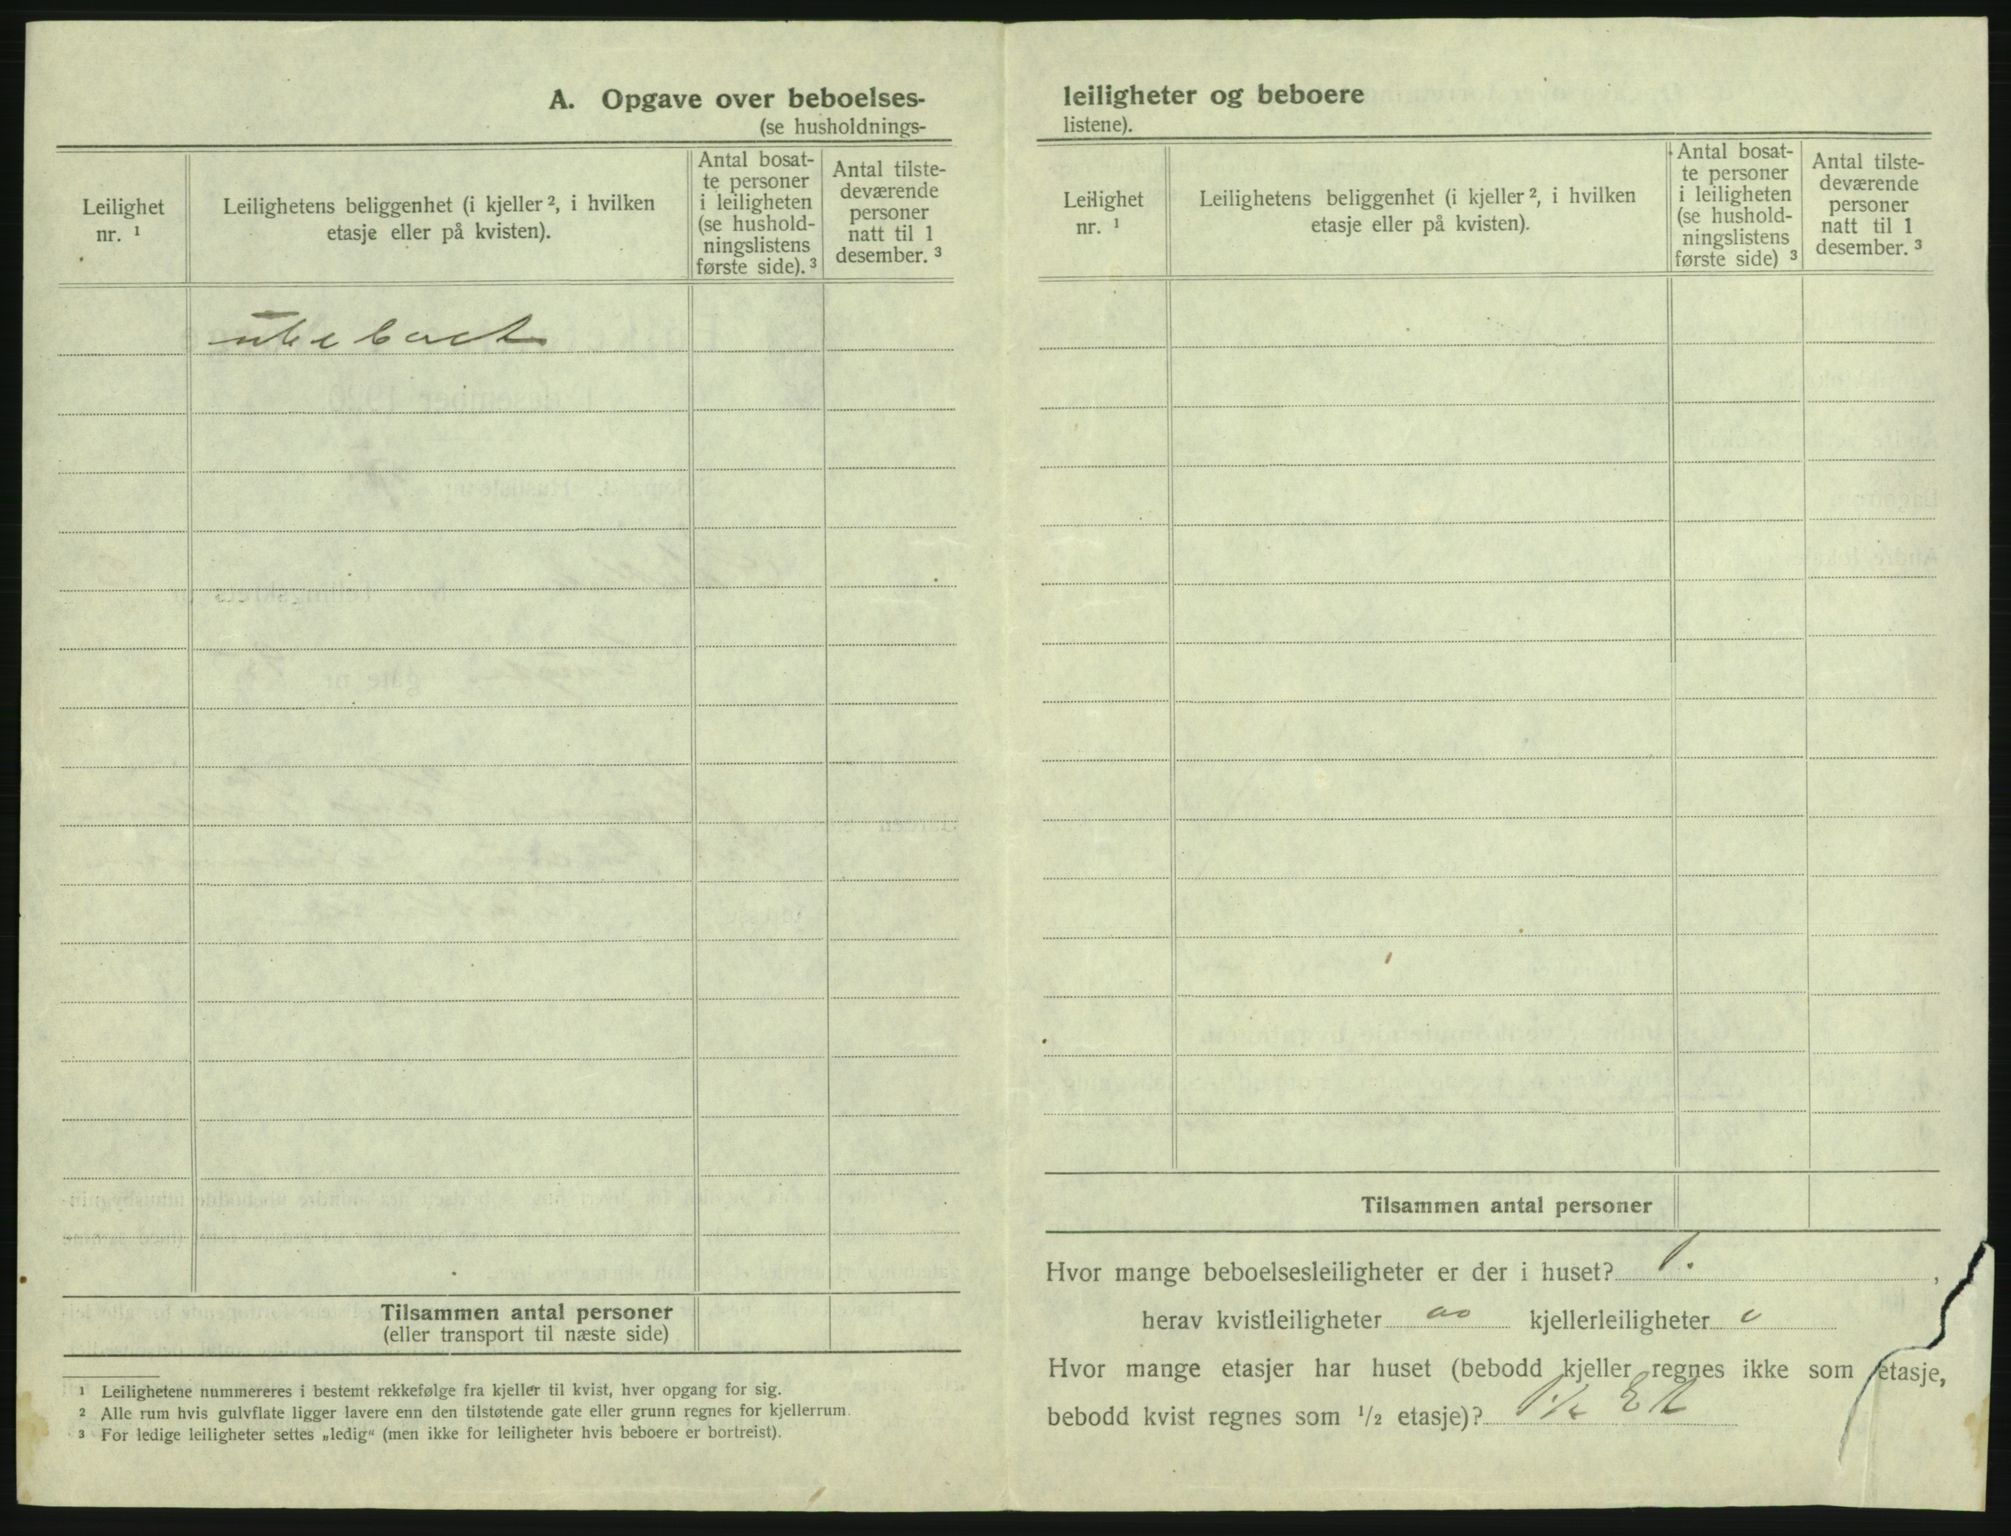 A. Opgave over beboelses-
(se husholdnings-
Leilighet nr. ¹
Leilighetens beliggenhet (i kjeller ², i hvilken etasje eller på kvisten).
Antal bosat-
te personer
i leiligheten
(se hushold-
ningslistens
første side). ³
Antal tilste-
deværende
personer
natt til 1
desember. ³
ubeboet
Tilsammen antal personer
(eller transport til næste side)
¹ Leilighetene nummereres i bestemt rekkefølge fra kjeller til kvist, hver opgang for sig.
² Alle rum hvis gulvflate ligger lavere enn den tilstøtende gate eller grunn regnes for kjellerrum.
³ For ledige leiligheter settes „ledig“ (men ikke for leiligheter hvis beboere er bortreist).
leiligheter og beboere
listene).
Leilighet nr. ¹
Leilighetens beliggenhet (i kjeller ², i hvilken etasje eller på kvisten).
Antal bosat-
te personer
i leiligheten
(se hushold-
ningslistens
første side) ³
Antal tilste-
deværende
personer
natt til 1
desember. ³
Tilsammen antal personer
Hvor mange beboelsesleiligheter er der i huset? 1. ,
herav kvistleiligheter oo kjellerleiligheter o
Hvor mange etasjer har huset (bebodd kjeller regnes ikke som etasje,
bebodd kvist regnes som ¹/₂ etasje)? 1 ½ Et